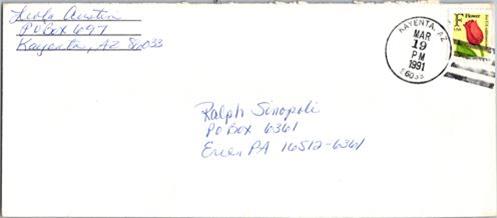 Leola Austin
PO Box 697
Kayenta, AZ 86033
KAYENTA, AZ
MAR
19
PM
1991
86033
F Flower
USA
Ralph Sinopoli
PO Box 6361
Erie, PA 16512-6361